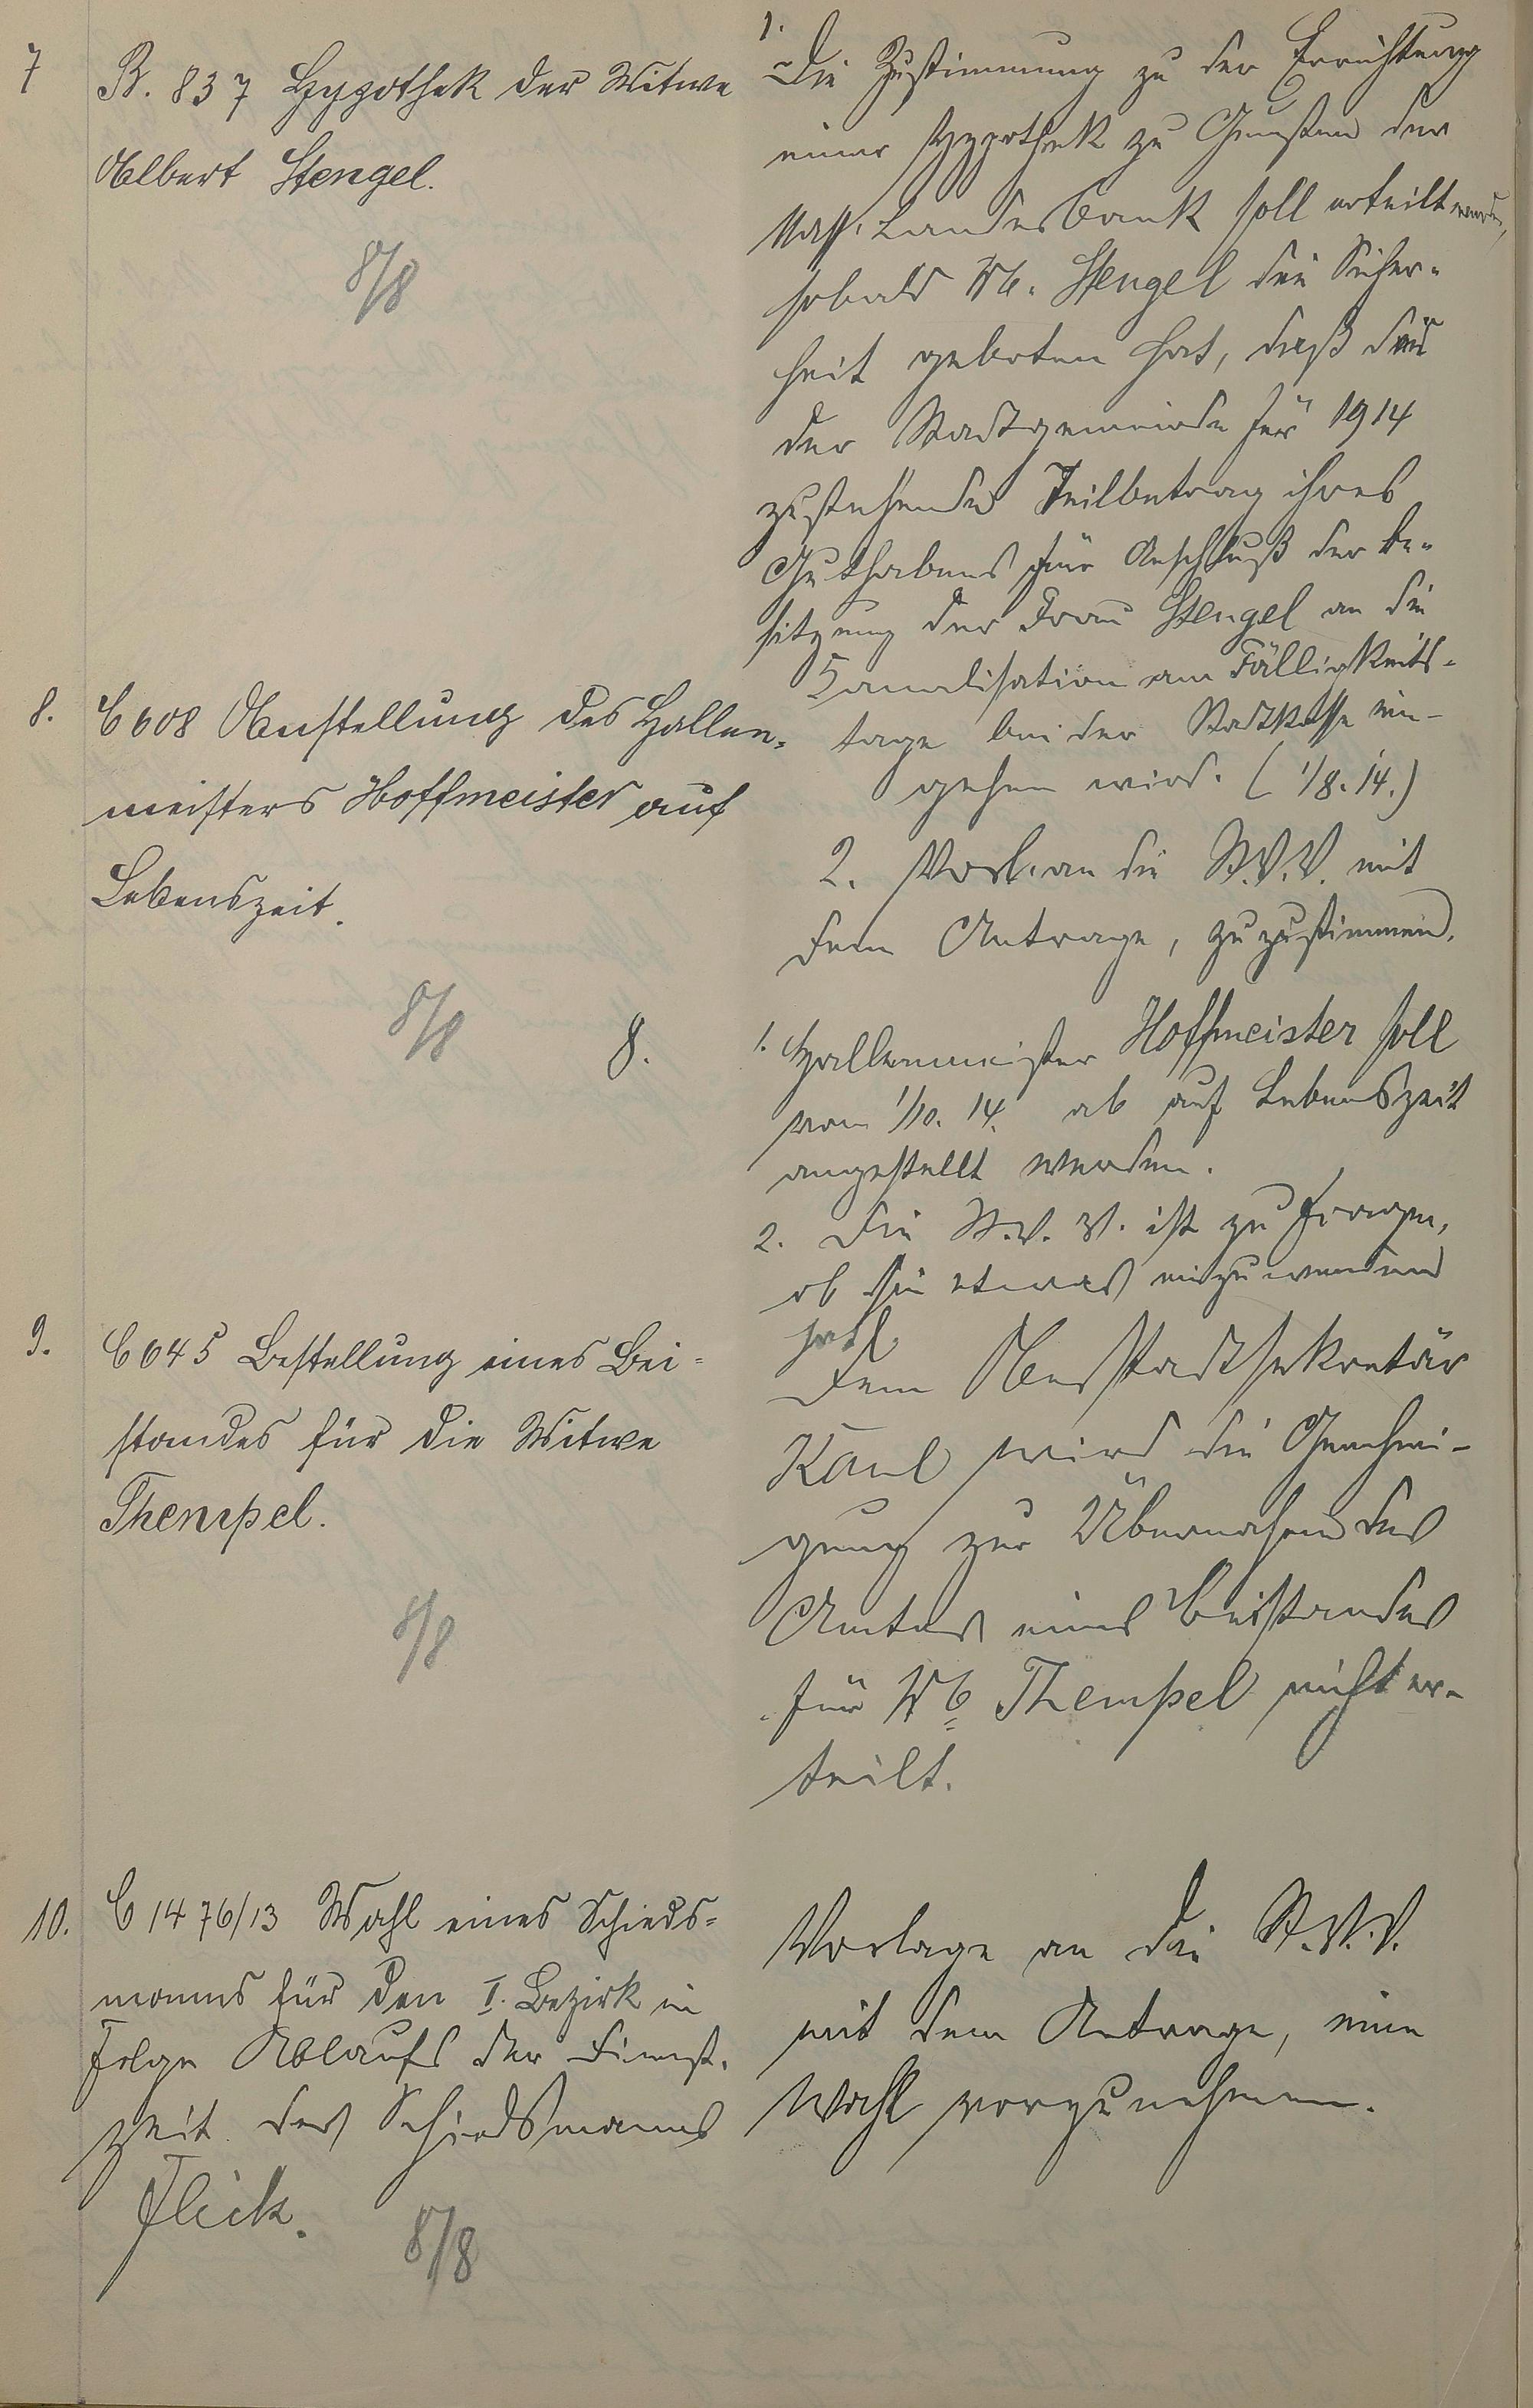 7
B. 837 Hypothek der Witwe
Albert Stengel.
8/8
1.
Die Zustimmung zu der Errichtung
einer Hypothek zu Gunsten der
Nass. Landesbank soll erteilt werden,
sobald Ww. Stengel die Sicher-
heit geboten hat, daß der
der Stadtgemeinde für 1914
zustehende Teilbetrag ihres
Guthabens für Anschluß der Be-
sitzung der Frau Stengel an die
Kanalisation am Fälligkeits-
tage bei der Stadtkasse ein-
gehen wird. (1/8.14.)
2. Vorl. an die St.V.V. mit
dem Antrage, zuzustimmen.
8.
C 608 Anstellung des Hallen-
meisters Hoffmeister auf
Lebenszeit.
8/8
8.
1. Hallenmeister Hoffmeister soll
vom 1/10. 14. ab auf Lebenszeit
angestellt werden.
2. Die St.V.V. ist zu fragen,
ob sie etwas einzuwenden
hat.
9.
C 645 Bestellung eines Bei-
standes für die Witwe
Thempel.
8/8
Dem Oberstadtsekretär
Kaul wird die Genehmi-
gung zur Übernahme des
Amtes eines Beistandes
für Ww Thempel nicht er-
teilt.
10.
C 1476/13 Wahl eines Schieds-
manns für den I. Bezirk in
Folge Ablaufs der Dienst-
zeit des Schiedsmanns
Flick.
8/8
Vorlage an die St.V.V.
mit dem Antrage, eine
Wahl vorzunehmen.